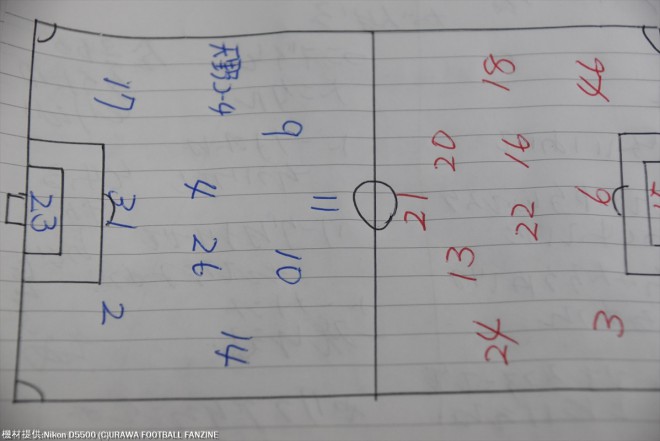 17
天野コーチ
9
23
31
4
11
26
10
2
14
18
44
20
16
21
6
22
13
24
3
機材提供:Nikon D5500 (C)URAWA FOOTBALL FANZINE